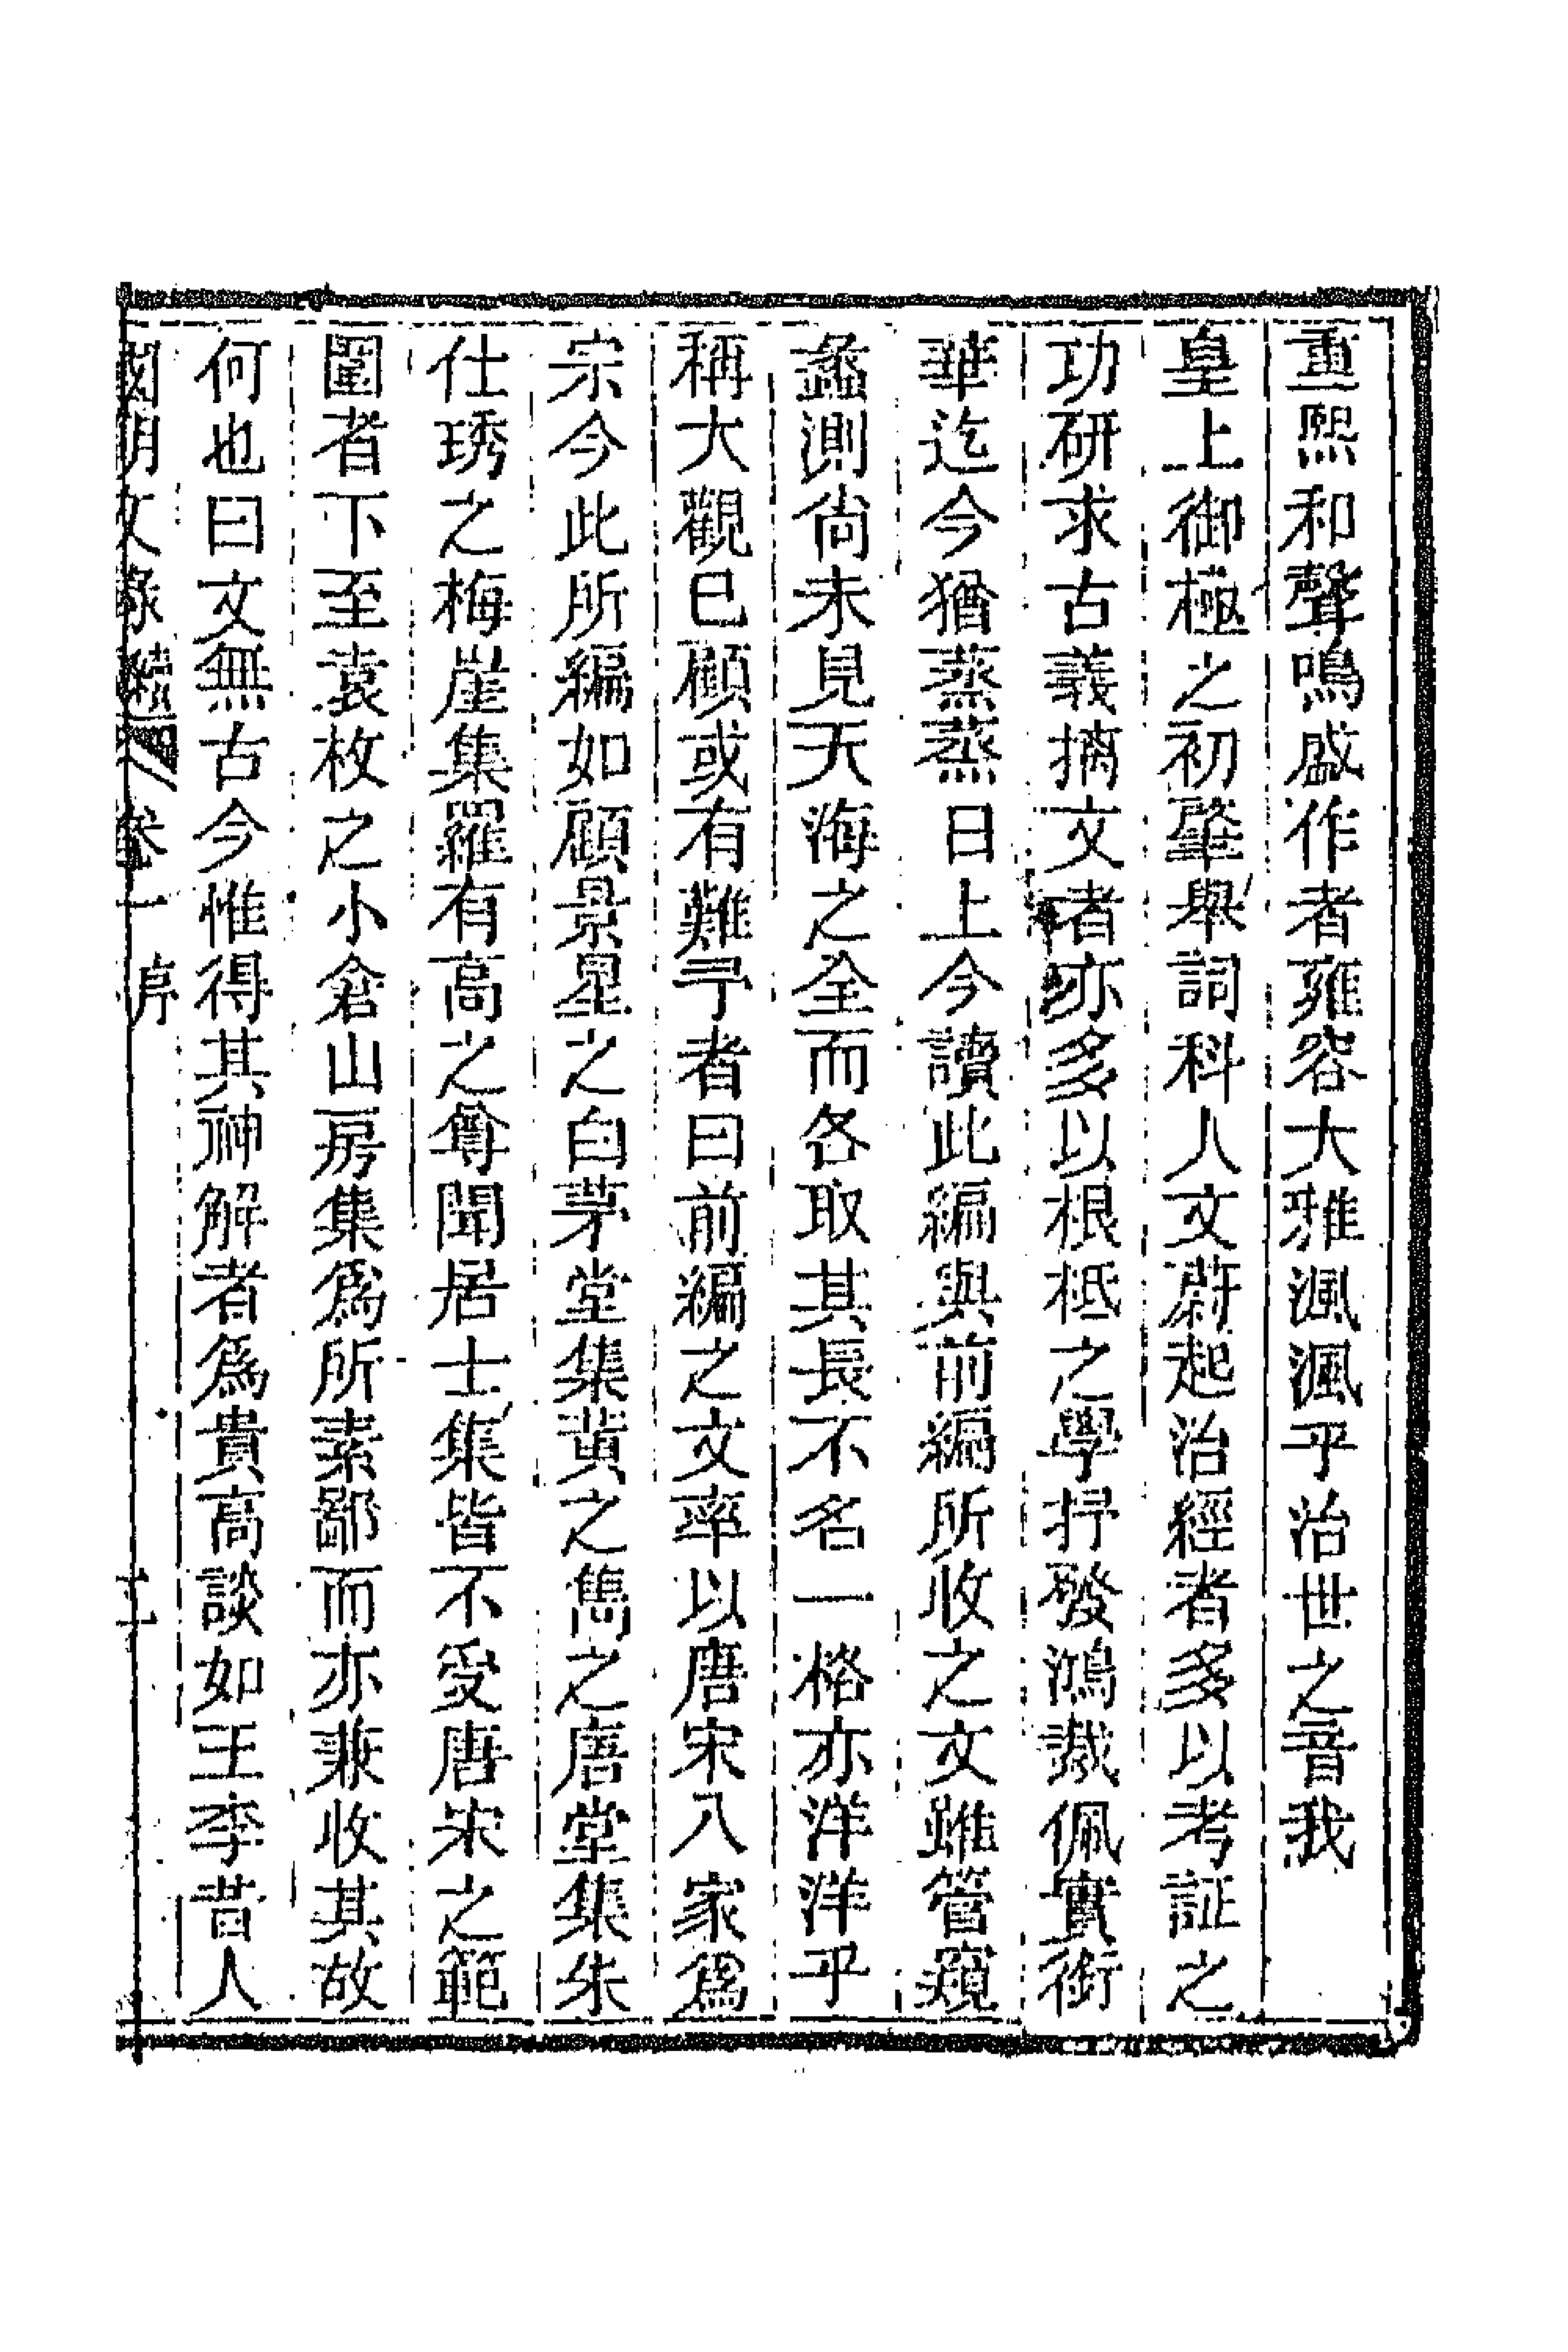 重熙和聲鳴盛作者雍容大雅渢渢乎治世之音我
皇上御極之初肇舉詞科人文蔚起治經者多以考証之
功研求古義摛文者亦多以根柢之學抒發鴻裁佩實銜
華迄今猶蒸蒸日上今讀此編與前編所收之文雖管窺
蠡測尚未見天海之全而各取其長不名一格亦洋洋乎
稱大觀已顧或有難予者曰前編之文率以唐宋八家為
宗今此所編如顧景星之白茅堂集黃之雋之唐堂集朱
仕琇之梅崖集羅有高之尊聞居士集皆不受唐宋之範
圍者下至袁枚之小倉山房集為所素鄙而亦兼收其故
何也曰文無古今惟得其神解者為貴高談如王李昔人
國朝文錄續編 卷一 序 二